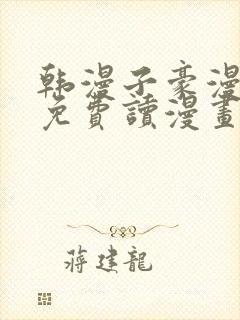 韩漫子豪漫
免費讀漫畫
蔣建龍